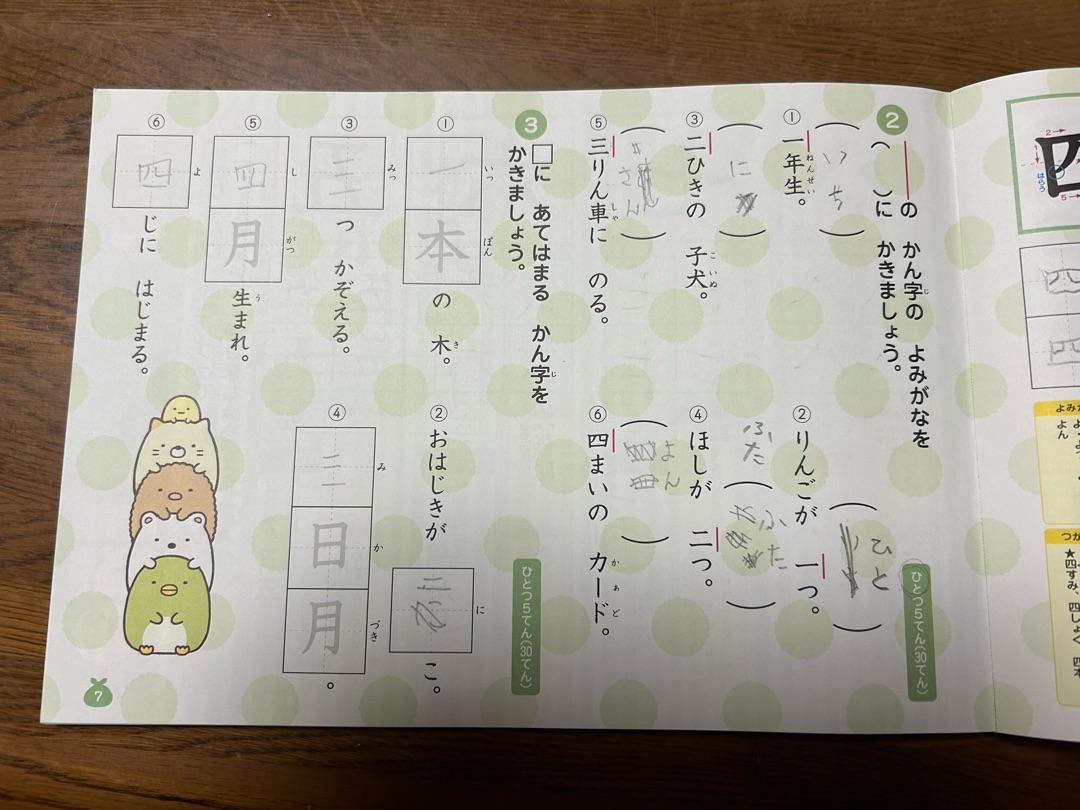 2 ――の かん字の よみがなを
( )に かきましょう。
じ
ひとつ5てん(30てん)
① 一年生。
ねんせい
いち
② りんごが 一つ。
ひと
③ 二ひきの 子犬。
こいぬ
に
④ ほしが 二つ。
ふた
ふた
⑤ 三りん車に のる。
しゃ
さん
⑥ 四まいの カード。
かぁど
よん
3 □に あてはまる かん字を
かきましょう。
じ
ひとつ5てん(30てん)
① 一本の 木。
いっ ぽん
き
② おはじきが 二こ。
に
③ 三つ かぞえる。
みっ
④ 三日月。
み か づき
⑤ 四月生まれ。
し がつ
う
⑥ 四じに はじまる。
よ
7
2→
1
はらう
5→
四
四
よん
★四すみ、四しょく